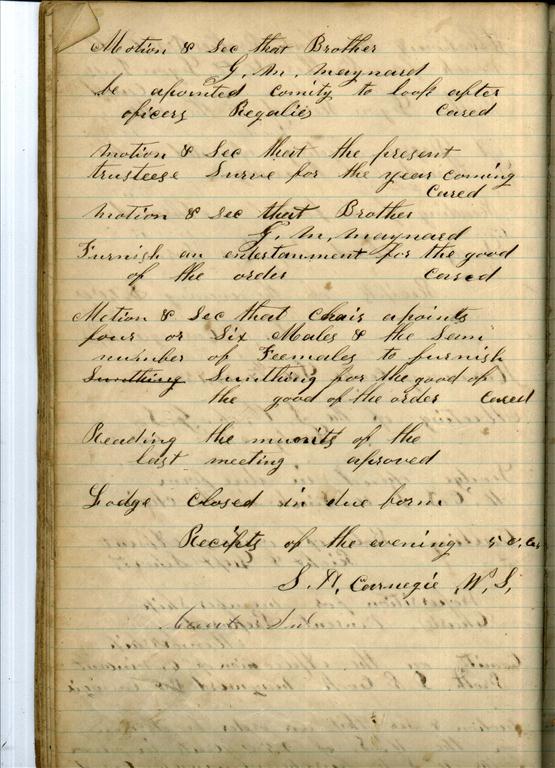 Motion & Sec that Brother
G. M. Maynard
be apointed comity to look after
oficers Regalies Cared
Motion & Sec that the present
trusteese Surve for the year coming
Cared
Motion & Sec that Brother
G. M. Maynard
Furnish an entertanment for the good
of the order Cared
Motion & Sec that Chair apoints
four or Six Males & the Sam
number of Feemales to furnish
Sumthing Sumthing for the good of
the good of the order Cared
Reading the munits of the
last meeting aproved
Lodge Closed in due form
Recipts of the evening 50 cts
S. A. Carnegie W. S.